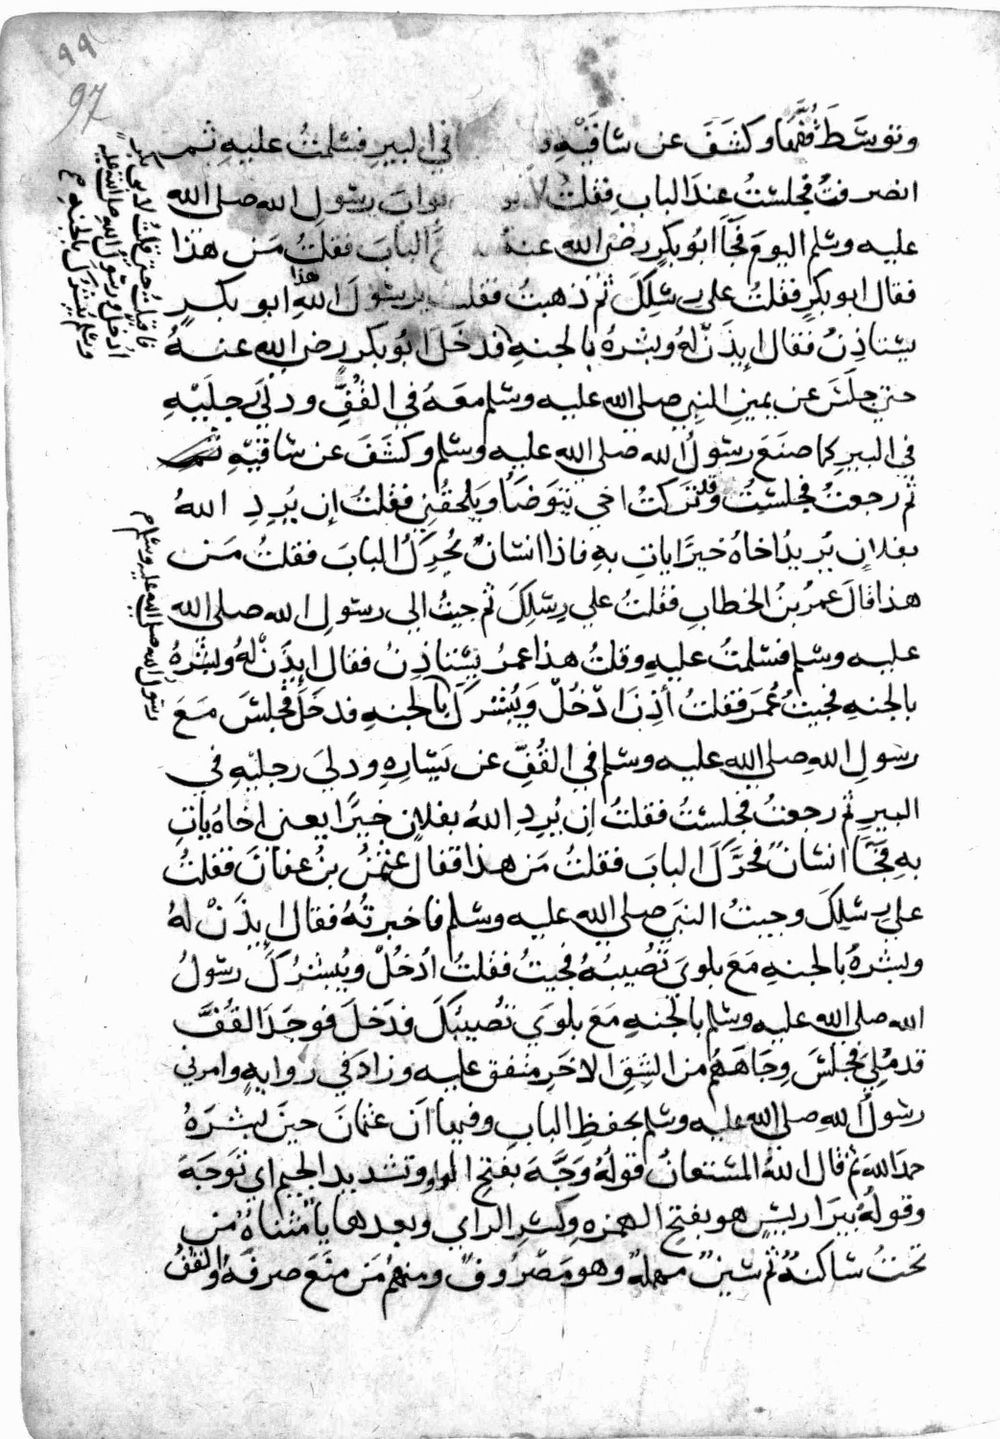 ٩٩
97
وتوسط قفها وكشف عن ساقيه في البير فسلمت عليه ثم
انصرفت فجلست عند الباب فقلت بواب رسول الله صلى الله
عليه وسلم اليوم فجا ابو بكر رضي الله عنه الباب فقلت من هذا
فقال ابو بكر فقلت على رسلك ثم ذهبت فقلت يرسول الله هذا ابو بكر
يستاذن فقال ايذن له وبشره بالجنه فدخل ابو بكر رضي الله عنه
حتى جلس عن يمين النبي صلى الله عليه وسلم معه في القف ودلى رجليه
في البير كما صنع رسول الله صلى الله عليه وسلم وكشف عن ساقيه
ثم رجعت فجلست وقد تركت اخي يتوضا ويلحقني فقلت إن يرد الله
بفلان يريد اخاه خيرًا يات به فاذا انسان يحرك الباب فقلت من
هذا قال عمر بن الخطاب فقلت على رسلك ثم جيت الى رسول الله صلى الله
عليه وسلم فسلمت عليه وقلت هذا عمر يستاذن فقال ايذن له وبشره
بالجنه فجيت عمر فقلت أذن ادخل ويبشرك بالجنه فدخل فجلس مع
رسول الله صلى الله عليه وسلم في القف عن يساره ودلى رجليه في
البير ثم رجعت فجلست فقلت ان يرد الله بفلان خيرًا يعني اخاه يات
به فجا انسان فحرك الباب فقلت من هذا فقال عثمن بن عفان فقلت
على رسلك وجيت النبي صلى الله عليه وسلم فاخبرته فقال ايذن له
وبشره بالجنه مع بلوى تصيبه فجيت فقلت ادخل ويبشرك رسول
الله صلى الله عليه وسلم بالجنه مع بلوى تصيبك فدخل فوجد القف
قد ملي فجلس وجاههم من الشق الاخر متفق عليه وزاد في روايه وامرني
رسول الله صلى الله عليه وسلم بحفظ الباب وفيها ان عثمان حين بشره
حمد الله ثم قال الله المستعان قوله وجه بفتح الواو وتشديد الجيم اي توجه
وقوله بير اريس هو بفتح الهمزه وكسر الراي وبعدها يا مثناة من
تحت ساكنة ثم سين مهملة وهو مصروف ومنهم من منع صرفه والقف
فاقبلت حتى قلت لابي بكر
ادخل ورسول الله صلى الله عليه
وسلم يبشرك بالجنه
رسول الله صلى الله عليه وسلم